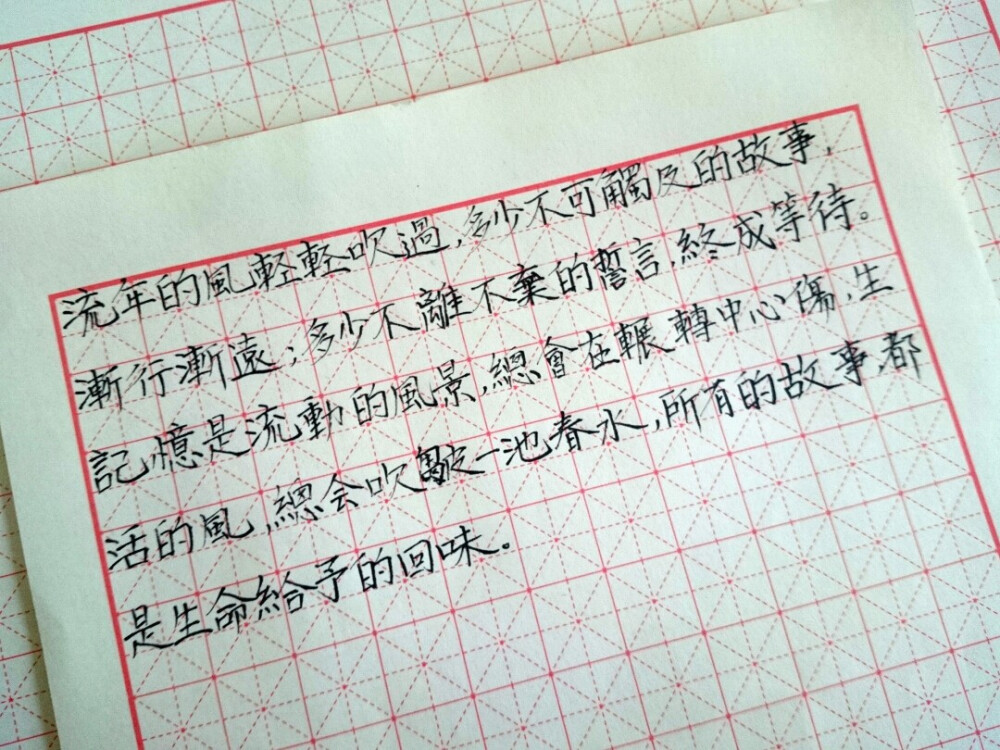 流年的風輕輕吹過，多少不可觸及的故事，
漸行漸遠；多少不離不棄的誓言，終成等待。
記憶是流動的風景，總會在輾轉中心傷，生
活的風，總会吹皺一池春水，所有的故事，都
是生命給予的回味。